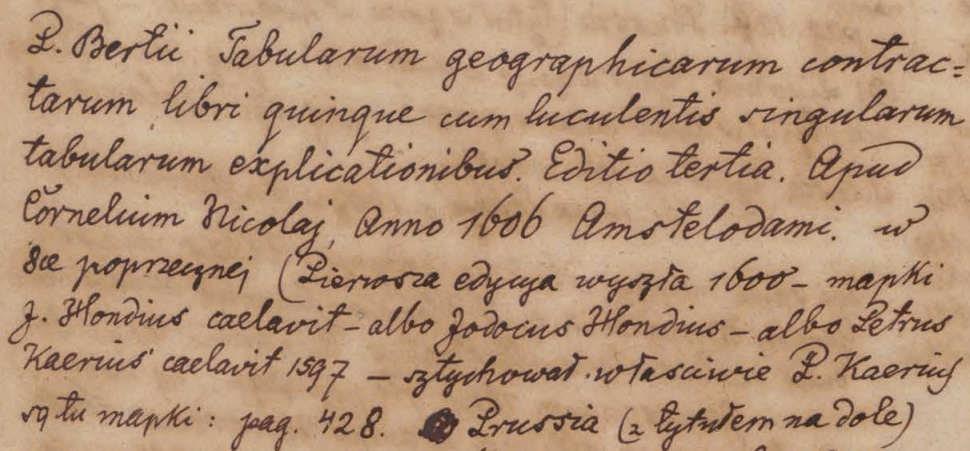 P. Bertii Tabularum geographicarum contrac=
tarum libri quinque cum luculentis singularum
tabularum explicationibus. Editio tertia. Apud
Cornelium Nicolaj, Anno 1606 Amstelodami. w
8ce poprzecznej (Pierwsza edycya wyszła 1600 – mapki
J. Hondius caelavit – albo Jodocus Hondius – albo Petrus
Kaerius caelavit 1597 – sztychował właściwie P. Kaerius
są tu mapki: pag. 428. Prussia (z tytułem na dole)